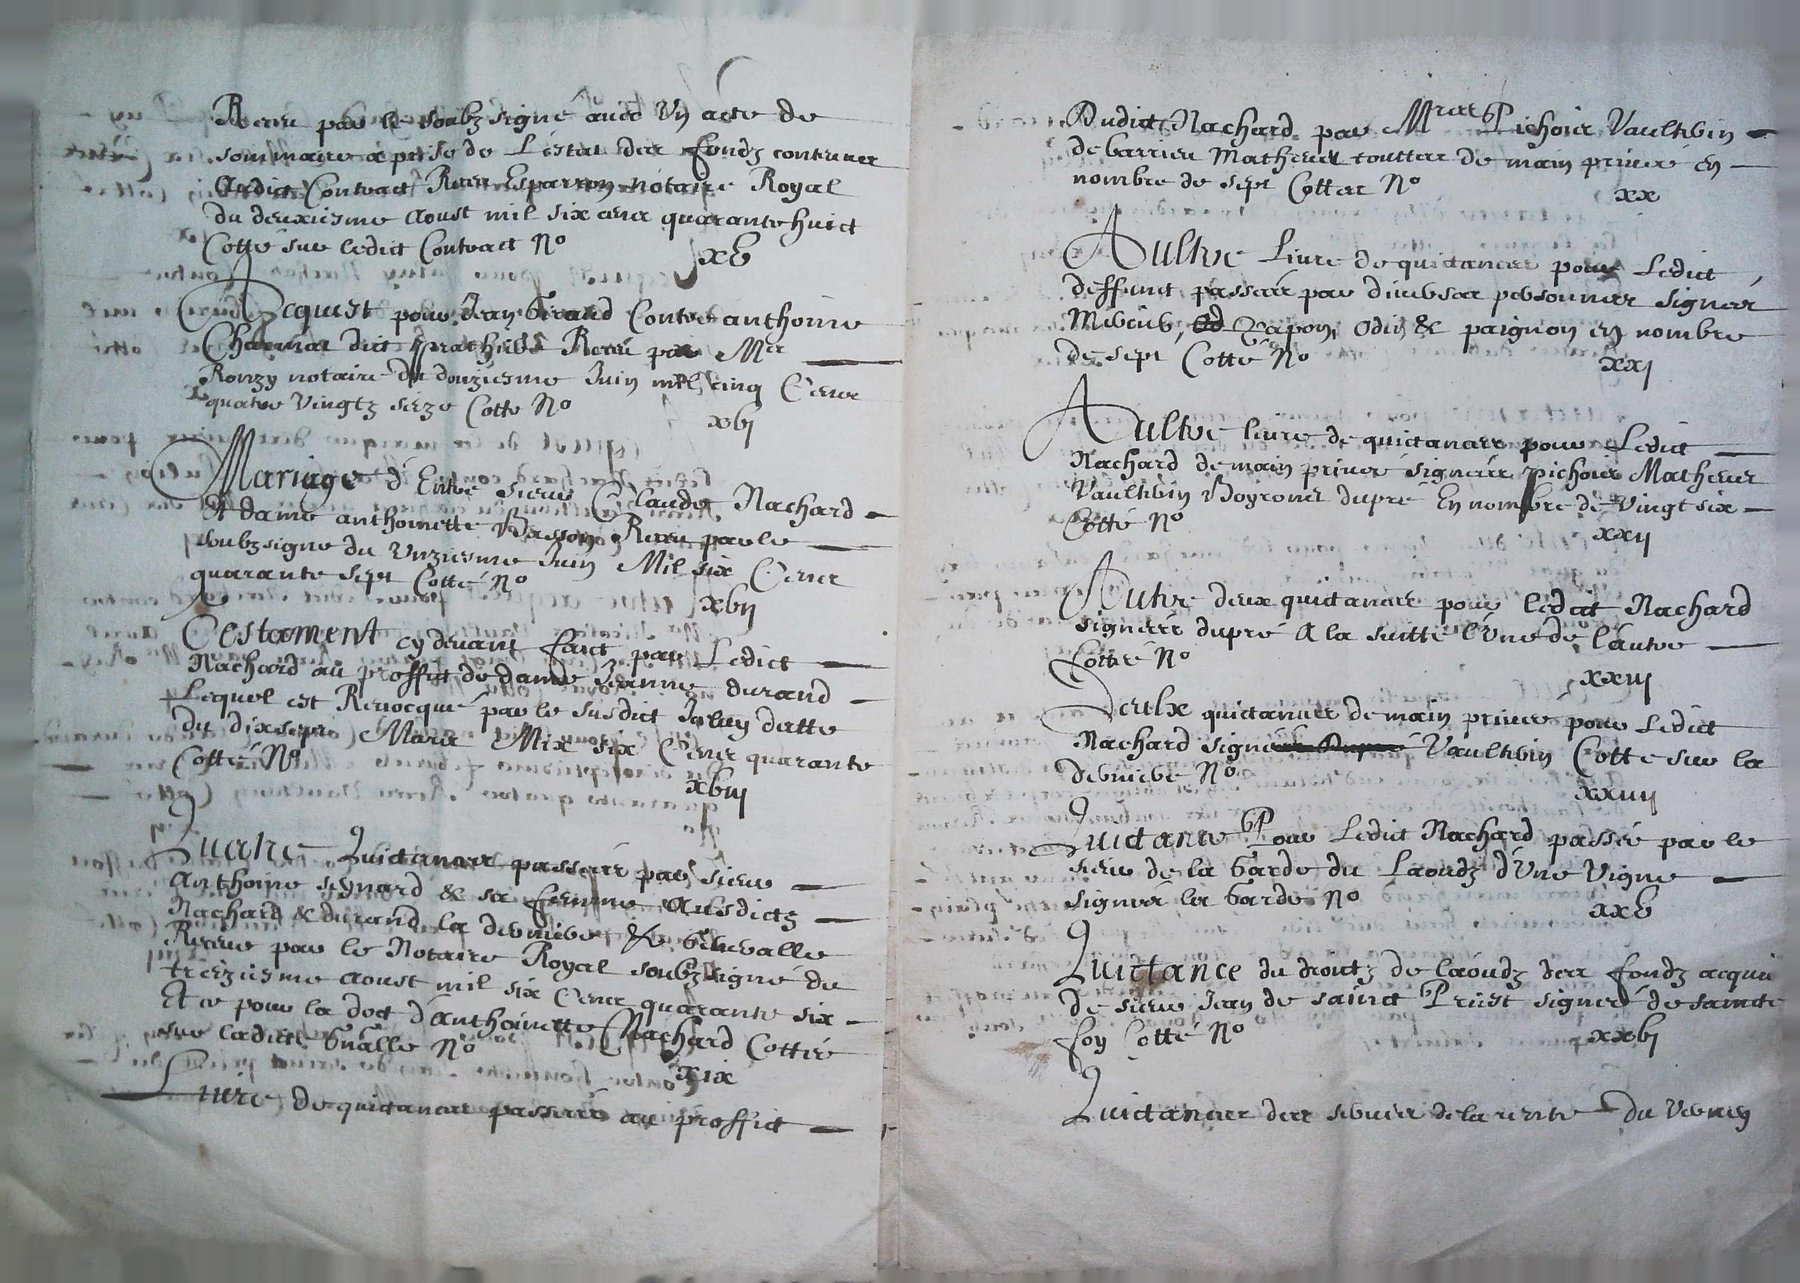 Receu par le soubz signé avec un acte de
sommaire aprise de l'estat des fondz contenus
Audict Contract Receu Esparron notaire Royal
du deuxiesme aoust mil six cens quarante huict
Cotté sur ledict Contract No xv
Acquist pour Jean Girard Contre anthoine
dict Receu par Me
Ronzy notaire du douziesme Juin mil cinq Cens
quatre vingtz seize Cotté No xvj
Mariage d'Entre sieur Claude Nachard
Et dame anthoinette Basson Receu par le
soubzsigné du unziesme Juin Mil six Cens
quarante sept Cotté No xvij
Testament cy devant faict par Ledict
Nachard au proffit de dame Jeanne durand
Lequel est Revocqué par le susdict Icluy datte
du dix sept Mars Mix six Cens quarante
Cotté No xviij
Quatre Quictances passées par sieur
Anthoine signard & sa femme Ausdictz
Nachard & durand la derniere
Receue par le Notaire Royal soubzsigné du
treziesme aoust mil six Cens quarante six
Et ce pour la dot d'anthoinette Nachard Cottée
sur ladicte No xix
Livre de quictances passées au proffict
Dudict Nachard par Mres Pichois Vaultrin
de barrieu Matheus touttes de main privée en
nombre de sept Cottes No xx
Aultre Livre de quictances pour Ledict
deffunct passées par diverses personnes signées
Mercier, Vapon, Odin & paignon en nombre
de sept Cotté No xxj
Aultre livre de quictances pour Ledict
Nachard de main privée signées pichois Matheus
Vaultrin Boyronet dupré En nombre de vingt six
Cotté No xxij
Autre deux quictances pour ledict Nachard
signées dupré A la suitte l'une de l'autre
Cotté No xxiij
quictances de main privée pour Ledict
Nachard signé Vaultrin Cotté sur la
derniere No xxiiij
Quictance Pour Ledict Nachard passée par le
sieur de la Garde du Laoudz d'Une vigne
signée la Garde No xxv
Quictance du droutz de laoudz des fondz acquis
de sieur Jean de sainct Priest signée de saincte
foy Cotté No xxvj
Quictances des servis de la rente du vernay